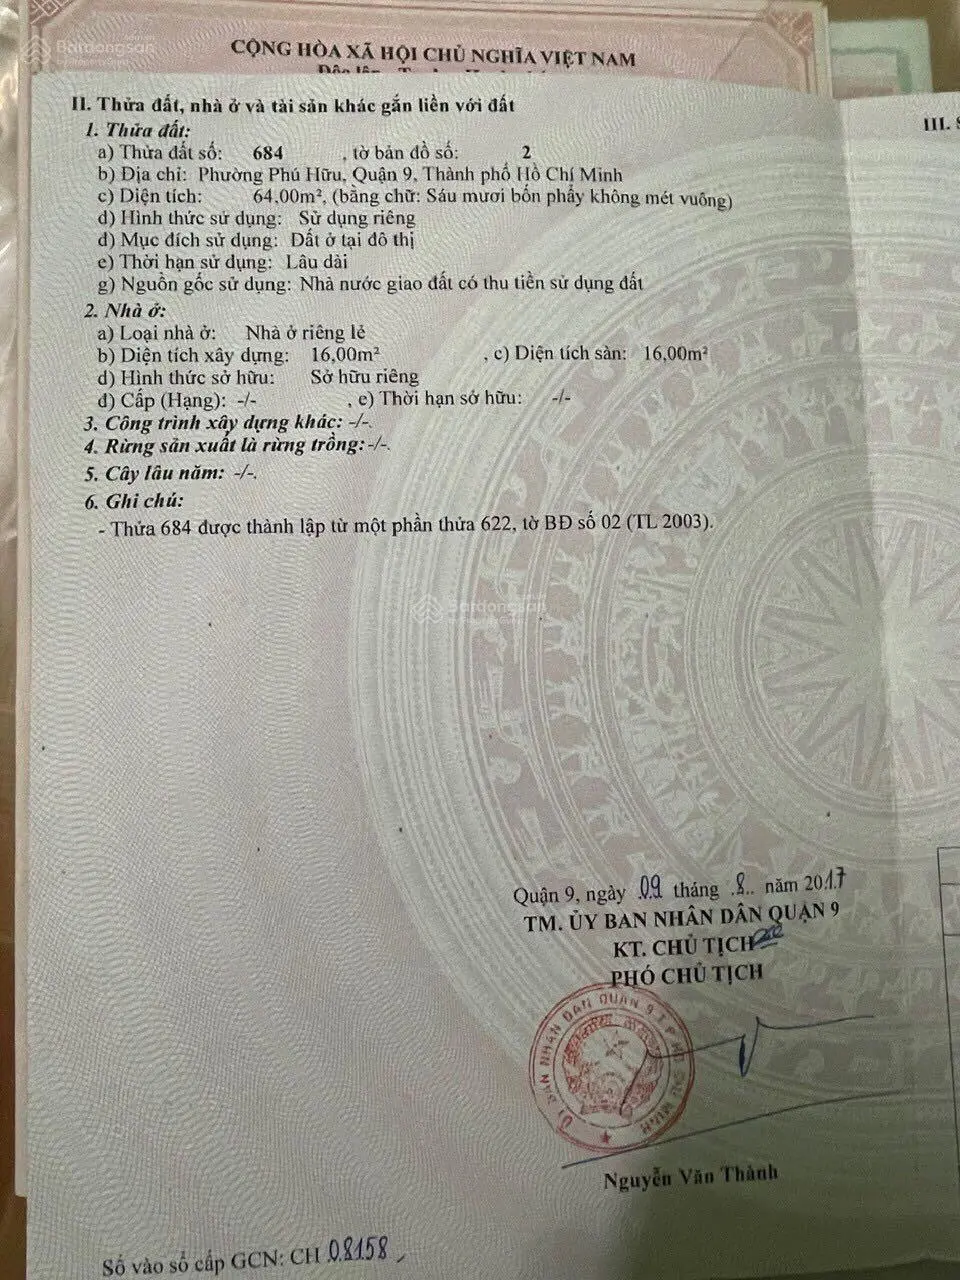 CỘNG HÒA XÃ HỘI CHỦ NGHĨA VIỆT NAM
Batdongsan
II. Thửa đất, nhà ở và tài sản khác gắn liền với đất
III.
1. Thửa đất:
a) Thửa đất số: 684 , tờ bản đồ số: 2
b) Địa chỉ: Phường Phú Hữu, Quận 9, Thành phố Hồ Chí Minh
c) Diện tích: 64,00m², (bằng chữ: Sáu mươi bốn phẩy không mét vuông)
d) Hình thức sử dụng: Sử dụng riêng
đ) Mục đích sử dụng: Đất ở tại đô thị
e) Thời hạn sử dụng: Lâu dài
g) Nguồn gốc sử dụng: Nhà nước giao đất có thu tiền sử dụng đất
2. Nhà ở:
a) Loại nhà ở: Nhà ở riêng lẻ
b) Diện tích xây dựng: 16,00m² , c) Diện tích sàn: 16,00m²
d) Hình thức sở hữu: Sở hữu riêng
đ) Cấp (Hạng): -/- , e) Thời hạn sở hữu: -/-
3. Công trình xây dựng khác: -/-.
4. Rừng sản xuất là rừng trồng:-/-.
5. Cây lâu năm: -/-.
6. Ghi chú:
- Thửa 684 được thành lập từ một phần thửa 622, tờ BĐ số 02 (TL 2003).
Batdongsan
Quận 9, ngày 09 tháng 8.. năm 2017
TM. ỦY BAN NHÂN DÂN QUẬN 9
KT. CHỦ TỊCH
PHÓ CHỦ TỊCH
ỦY BAN NHÂN DÂN QUẬN 9 T.P HỒ CHÍ MINH
Nguyễn Văn Thành
Số vào sổ cấp GCN: CH 08158